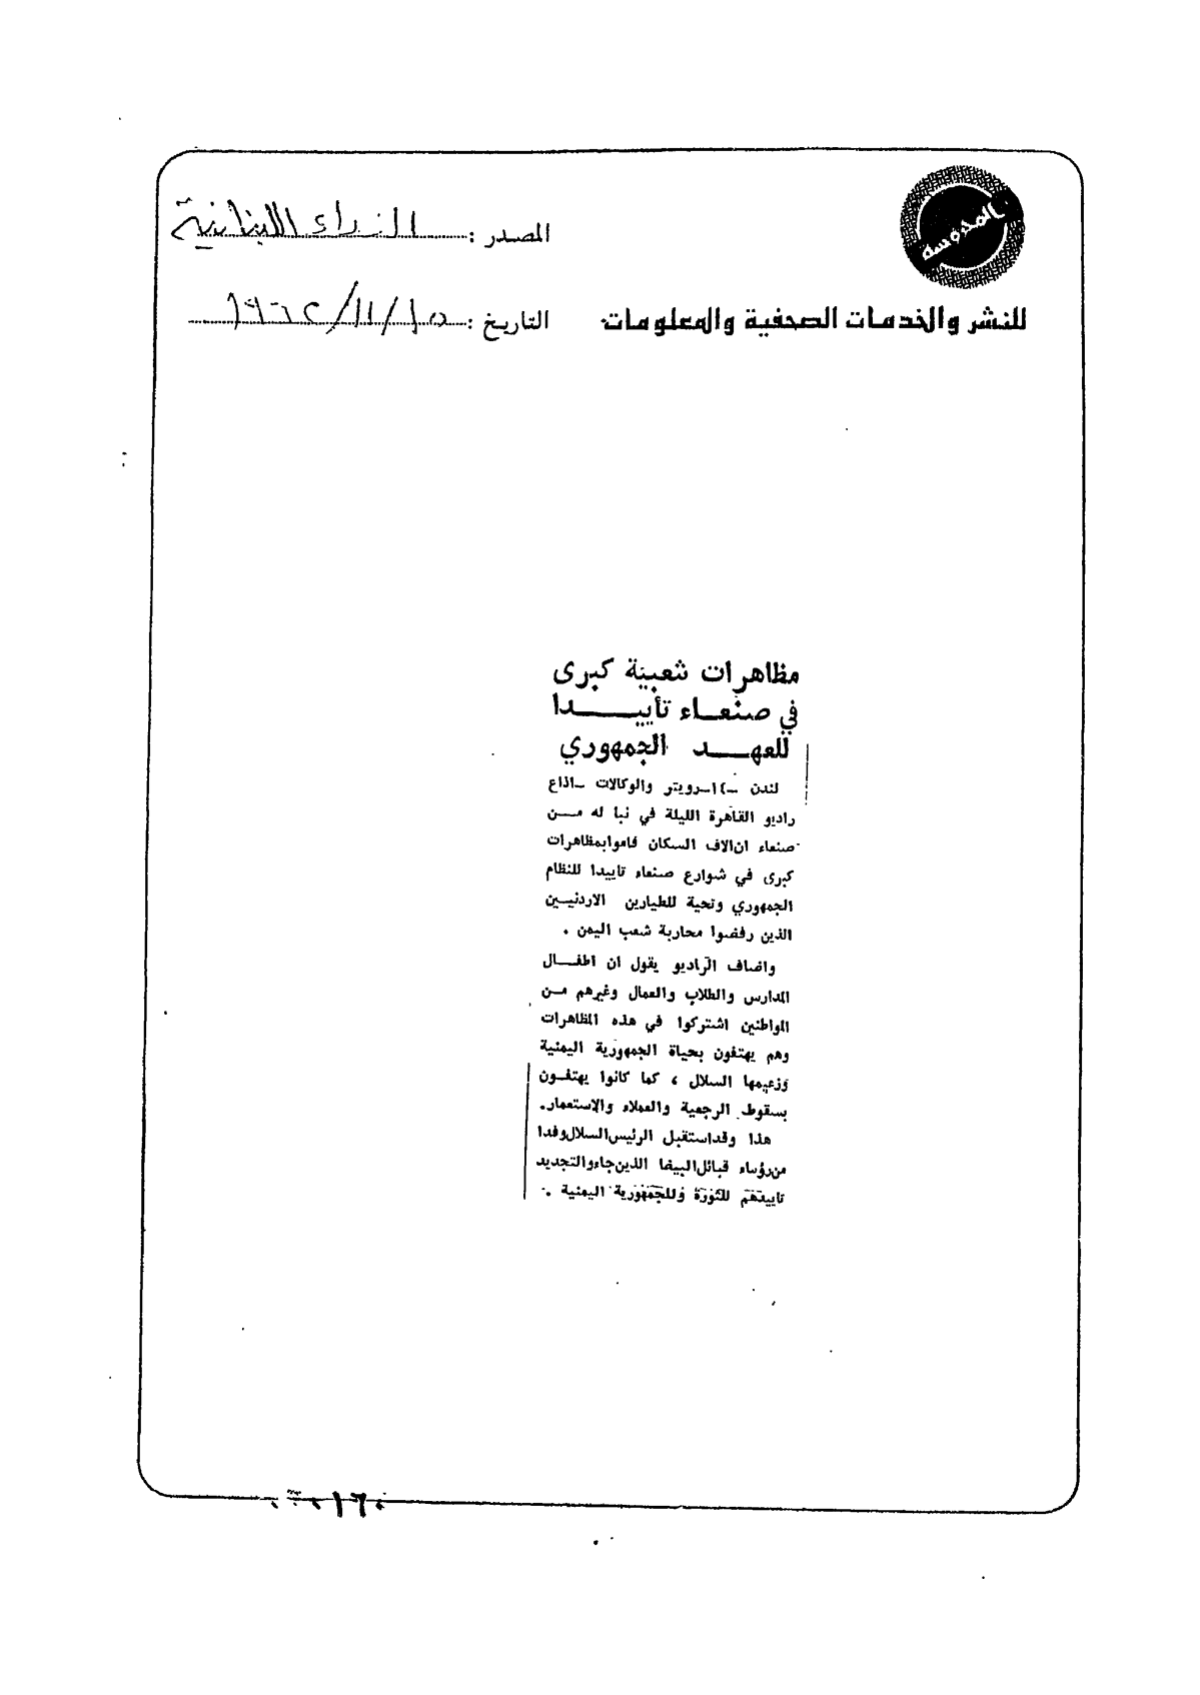 المحروسة
المصدر : النداء اللبنانية
للنشر والخدمات الصحفية والمعلومات
التاريخ : ١٥/١١/١٩٦٢
مظاهرات شعبية كبرى
في صنعاء تأييدا
للعهد الجمهوري
لندن ـ ١٤ـرويتر والوكالات ـ اذاع
راديو القاهرة الليلة في نبا له من
صنعاء ان الاف السكان قاموا بمظاهرات
كبرى في شوارع صنعاء تاييدا للنظام
الجمهوري وتحية للطيارين الاردنيين
الذين رفضوا محاربة شعب اليمن .
واضاف الراديو يقول ان اطفال
المدارس والطلاب والعمال وغيرهم من
المواطنين اشتركوا في هذه المظاهرات
وهم يهتفون بحياة الجمهورية اليمنية
وزعيمها السلال ، كما كانوا يهتفون
بسقوط الرجعية والعملاء والاستعمار.
هذا وقد استقبل الرئيس السلال وفدا
من رؤساء قبائل البيضا الذين جاءوا لتجديد
تاييدهم للثورة وللجمهورية اليمنية .